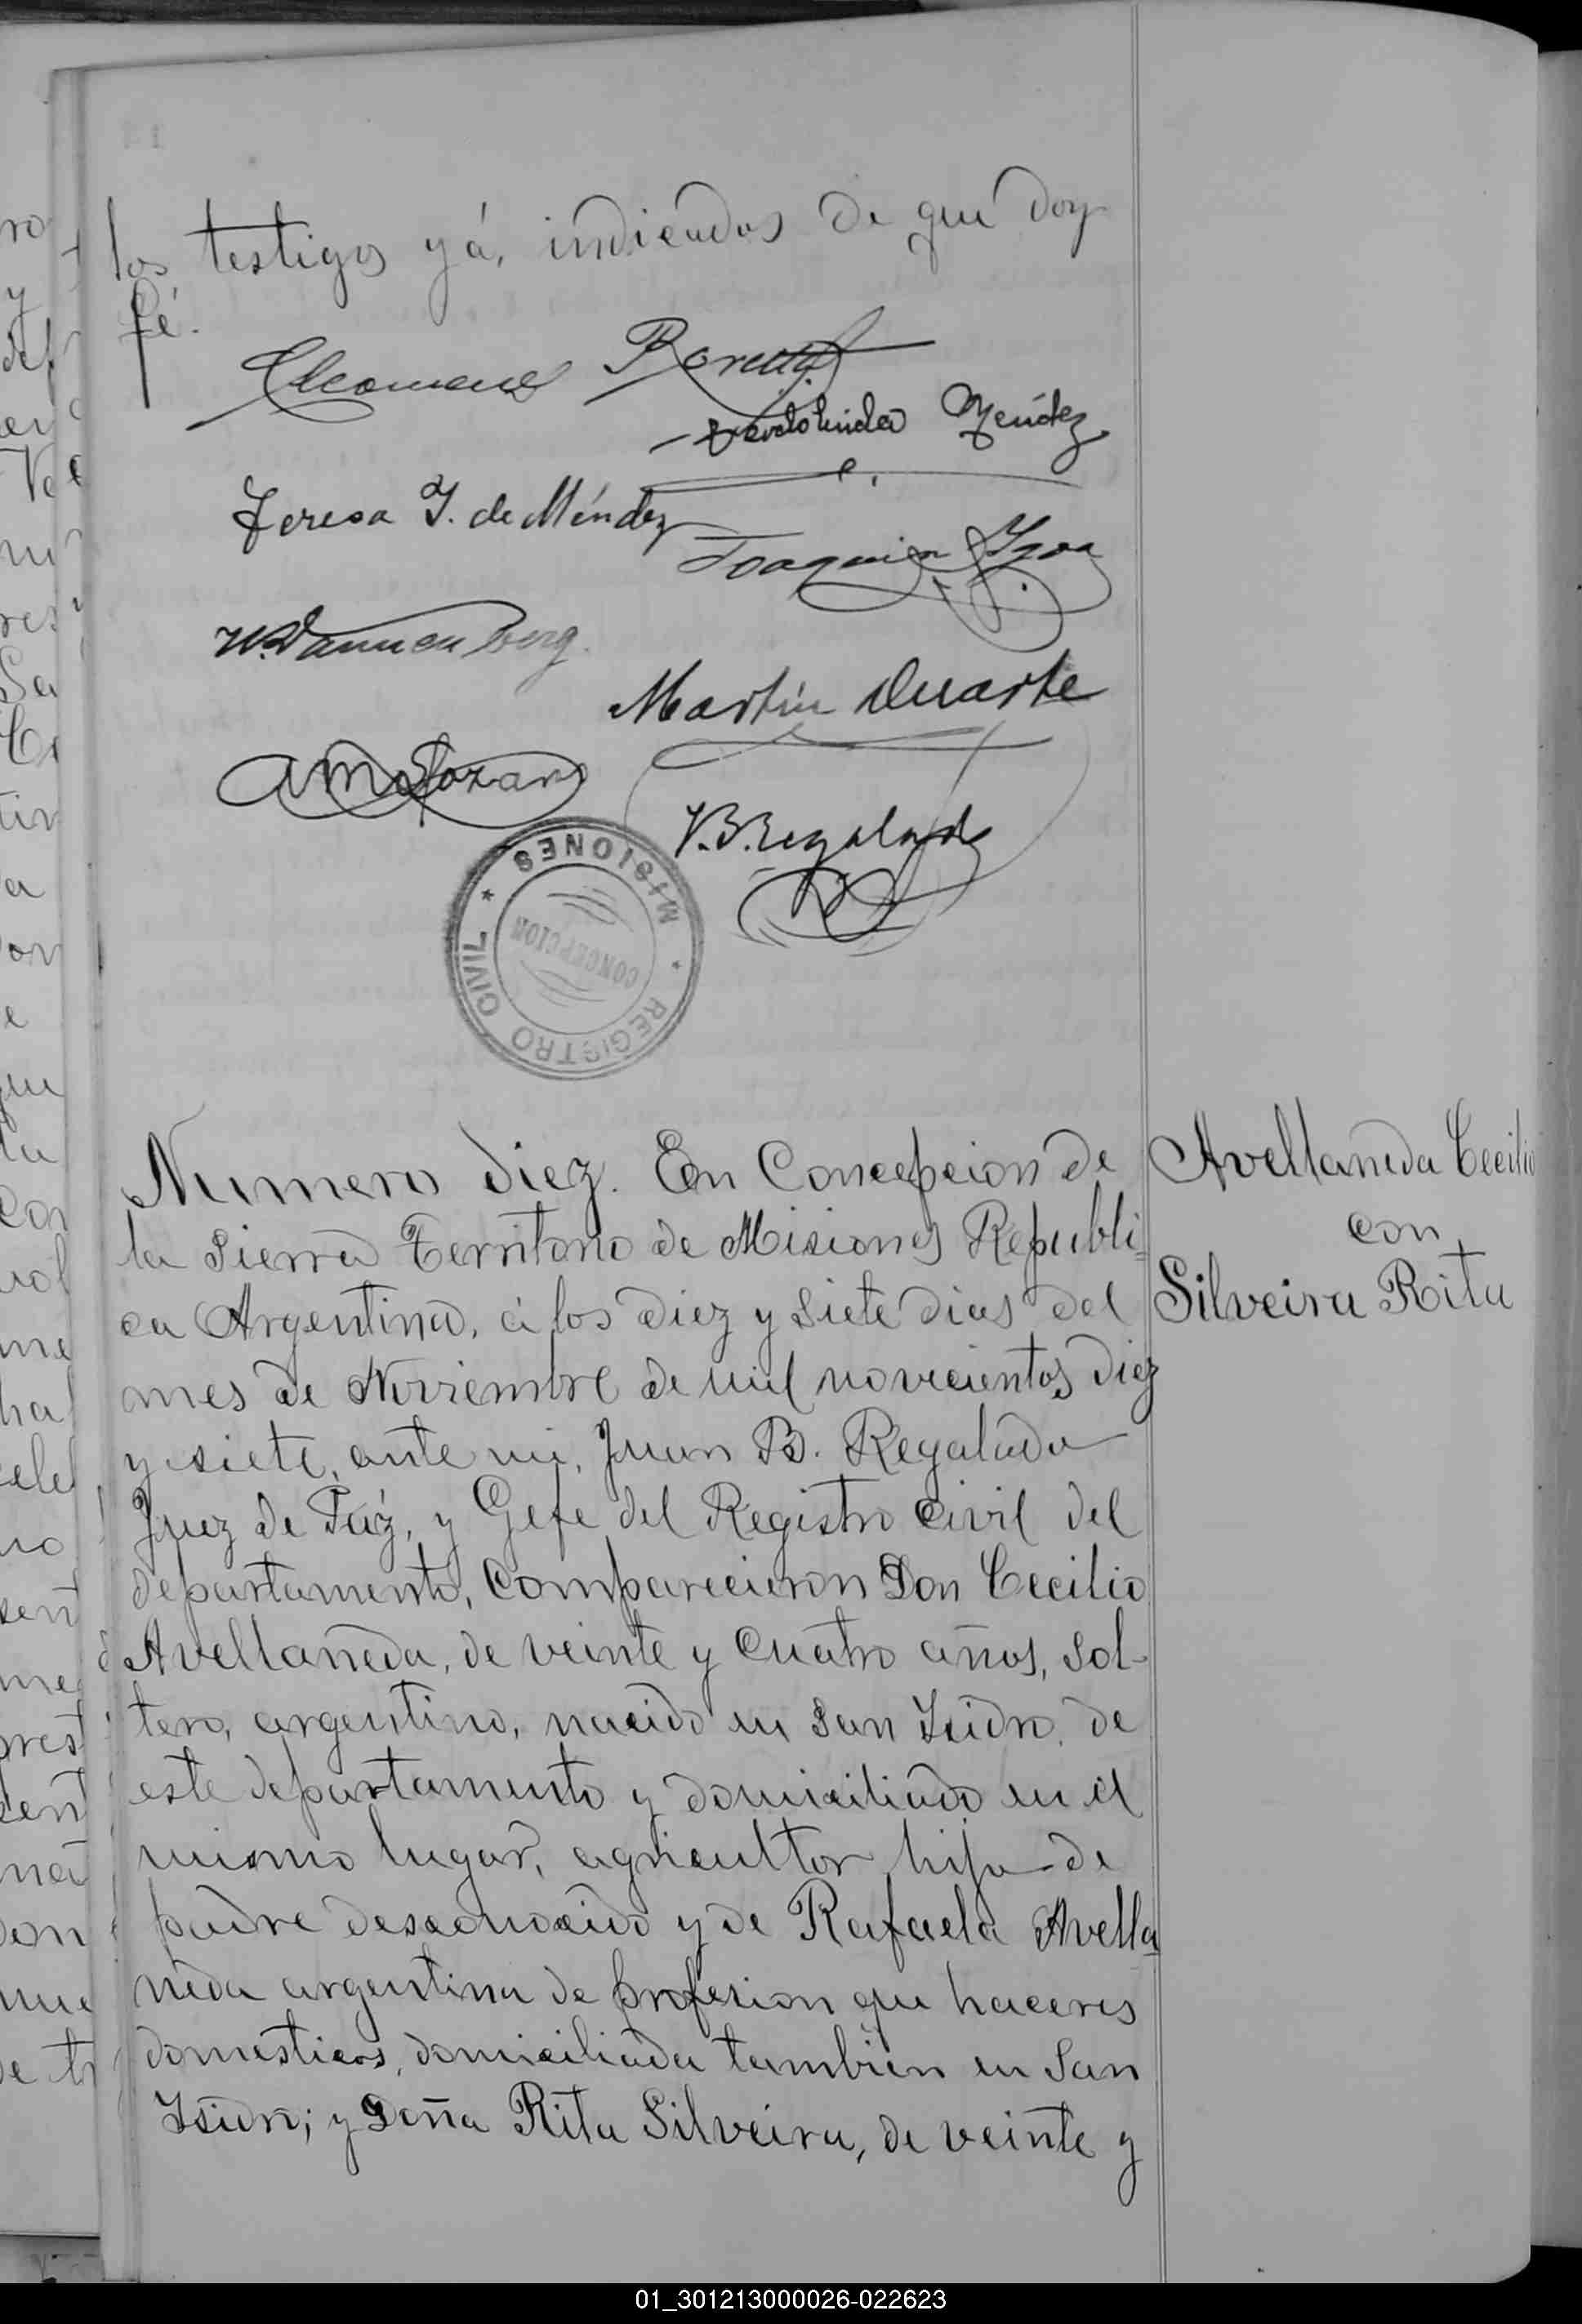 los testigos yá, indicados de que doy
fé.
Cleomene
Mendez
Teresa Y. de Méndez
Joaquin
W. Dannenberg.
Martin Duarte
Lozano
J. B. Regalado
MISIONES * REGISTRO CIVIL *
CONCEPCION
Numero diez. En Concepcion de
la Sierra Territorio de Misiones Republi=
ca Argentina, á los diez y siete dias del
mes de Noviembre de mil novecientos diez
y siete, ante mi, Juan B. Regalado
Juez de Páz, y Gefe del Registro Civil del
departamento, Comparecieron Don Cecilio
Avellaneda, de veinte y cuatro años, sol-
tero, argentino, nacido en San Isidro, de
este departamento y domiciliado en el
mismo lugar, agricultor, hijo de
padre desconocido y de Rafaela Avella
neda argentina de profesion que haceres
domesticos, domiciliada tambien en San
Isidro; y Doña Rita Silveira, de veinte y
Avellaneda Cecilio
con
Silveira Rita
01_301213000026-022623